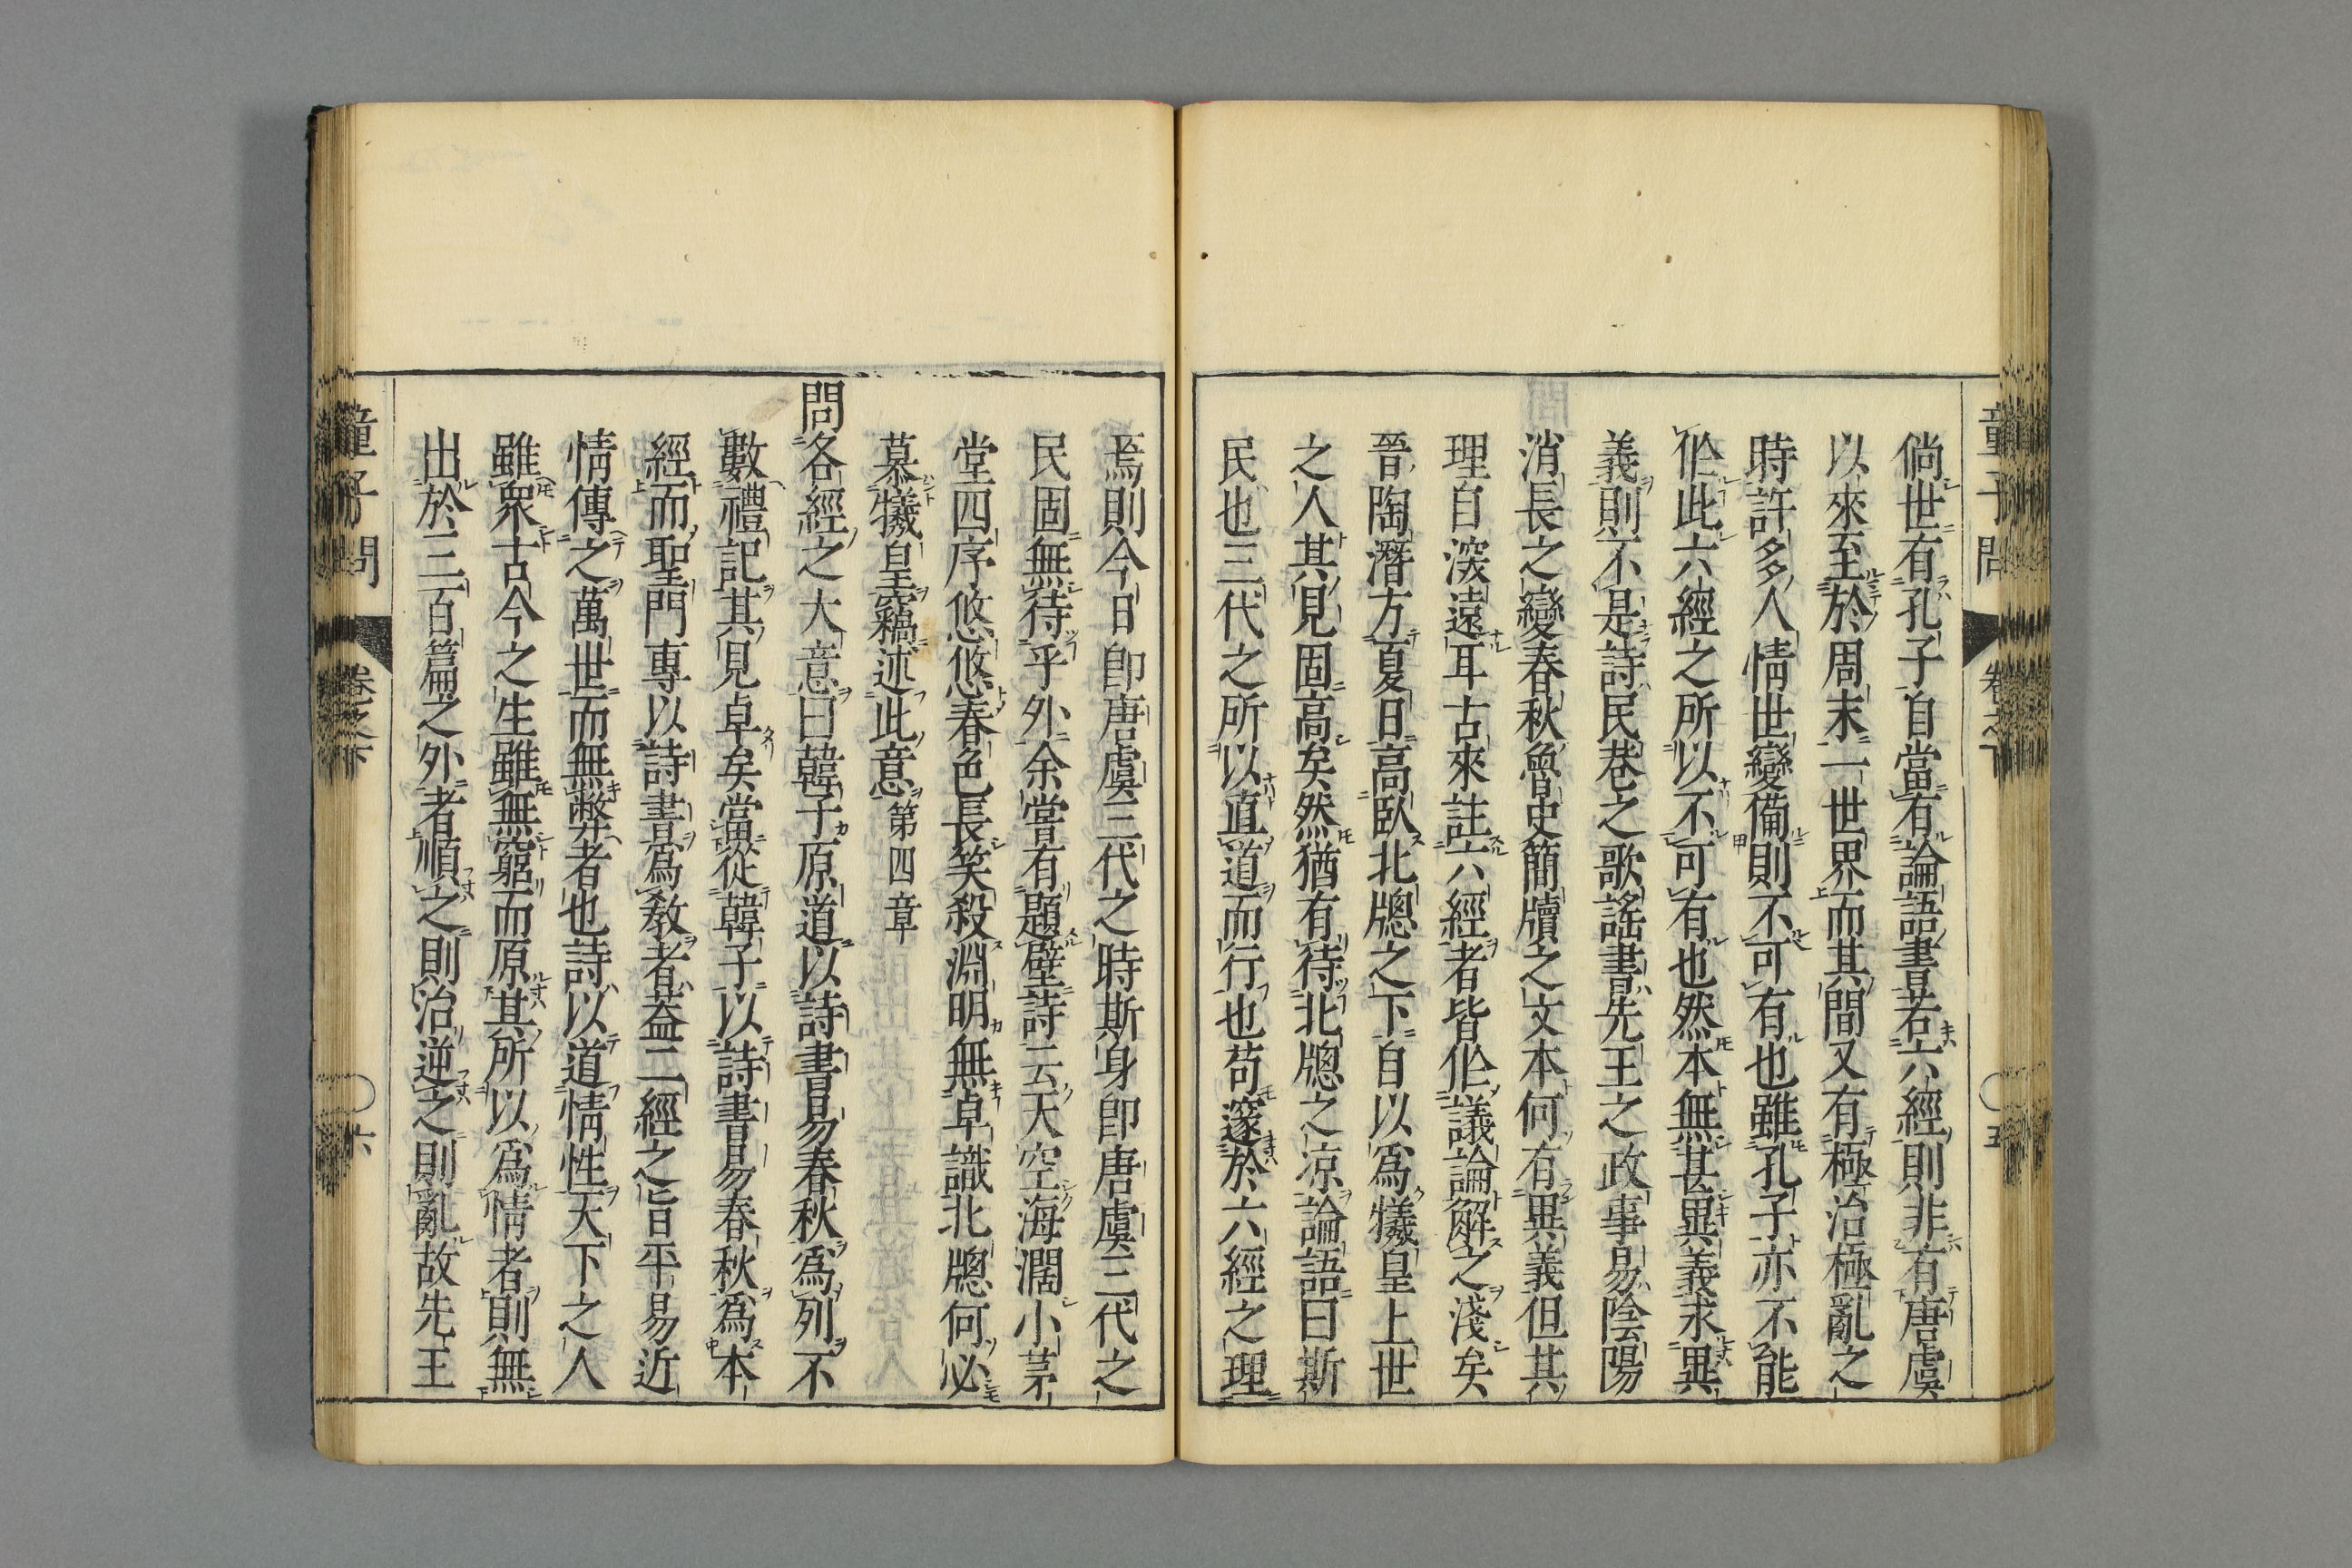 倘世有孔子自當有論語書若六經則非有唐虞
以來至於周末一世界而其間又有極治極亂之
時許多人情世變備則不可有也雖孔子亦不能
作此六經之所以不可有也然本無甚異義求異
義則不是詩民巷之歌謠書先王之政事易陰陽
消長之變春秋魯史簡牘之文本何有異義但其
理自深遠耳古來註六經者皆作議論解之淺矣
晉陶潛方夏日高臥北牕之下自以爲犧皇上世
之人其見固高矣然猶有待北牕之凉論語曰斯
民也三代之所以直道而行也苟邃於六經之理
焉則今日卽唐虞三代之時斯身卽唐虞三代之
民固無待乎外余嘗有題壁詩云天空海濶小茅
堂四序悠悠春色長笑殺淵明無卓識北牕何必
慕犧皇竊述此意第四章
問各經之大意曰韓子原道以詩書易春秋爲列不
數禮記其見卓矣當從韓子以詩書易春秋爲本
經而聖門專以詩書爲教者蓋二經之旨平易近
情傳之萬世而無弊者也詩以道情性天下之人
雖衆古今之生雖無窮而原其所以爲情者則無
出於三百篇之外者順之則治逆之則亂故先王
童子問
卷之下
五
童子問
卷之下
六